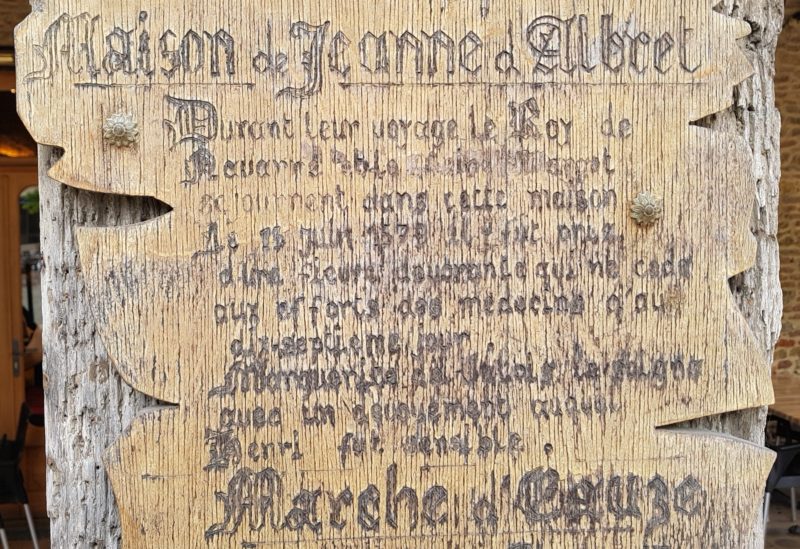 Maison de Jeanne d'Albret
Durant leur voyage le Roy de
Navarre et la Reine Margot
sejournent dans cette maison
Le 15 juin 1579 il y fut pris
d'une fievre devorante qui ne cede
aux efforts des medecins q'au
dix-septieme jour
Marguerite de Valois le soigne
avec un devouement auquel
Henri fut sensible
Marche d'Eauze